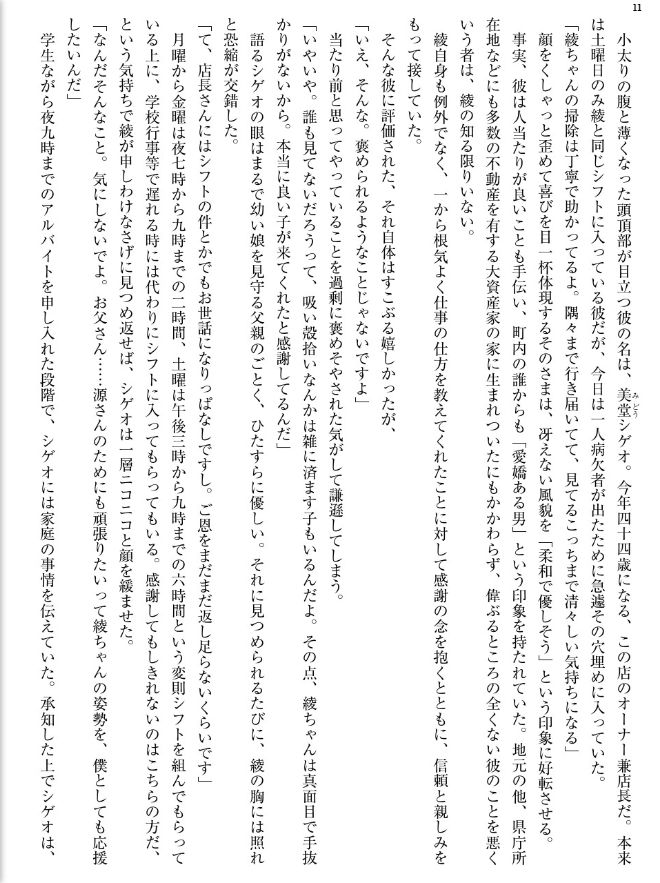 11
小太りの腹と薄くなった頭頂部が目立つ彼の名は、美堂シゲオ。今年四十四歳になる、この店のオーナー兼店長だ。本来
みどう
は土曜日のみ綾と同じシフトに入っている彼だが、今日は一人病欠者が出たために急遽その穴埋めに入っていた。
「綾ちゃんの掃除は丁寧で助かってるよ。隅々まで行き届いてて、見てるこっちまで清々しい気持ちになる」
顔をくしゃっと歪めて喜びを目一杯体現するそのさまは、冴えない風貌を「柔和で優しそう」という印象に好転させる。
事実、彼は人当たりが良いことも手伝い、町内の誰からも「愛嬌ある男」という印象を持たれていた。地元の他、県庁所
在地などにも多数の不動産を有する大資産家の家に生まれついたにもかかわらず、偉ぶるところの全くない彼のことを悪く
いう者は、綾の知る限りいない。
綾自身も例外でなく、一から根気よく仕事の仕方を教えてくれたことに対して感謝の念を抱くとともに、信頼と親しみを
もって接していた。
そんな彼に評価された、それ自体はすこぶる嬉しかったが、
「いえ、そんな。褒められるようなことじゃないですよ」
当たり前と思ってやっていることを過剰に褒めそやされた気がして謙遜してしまう。
「いやいや。誰も見てないだろうって、吸い殻拾いなんかは雑に済ます子もいるんだよ。その点、綾ちゃんは真面目で手抜
かりがないから。本当に良い子が来てくれたと感謝してるんだ」
語るシゲオの眼はまるで幼い娘を見守る父親のごとく、ひたすらに優しい。それに見つめられるたびに、綾の胸には照れ
と恐縮が交錯した。
「て、店長さんにはシフトの件とかでもお世話になりっぱなしですし。ご恩をまだまだ返し足らないくらいです」
月曜から金曜は夜七時から九時までの二時間、土曜は午後三時から九時までの六時間という変則シフトを組んでもらって
いる上に、学校行事等で遅れる時には代わりにシフトに入ってもらってもいる。感謝してもしきれないのはこちらの方だ、
という気持ちで綾が申しわけなさげに見つめ返せば、シゲオは一層ニコニコと顔を緩ませた。
「なんだそんなこと。気にしないでよ。お父さん……源さんのためにも頑張りたいって綾ちゃんの姿勢を、僕としても応援
したいんだ」
学生ながら夜九時までのアルバイトを申し入れた段階で、シゲオには家庭の事情を伝えていた。承知した上でシゲオは、